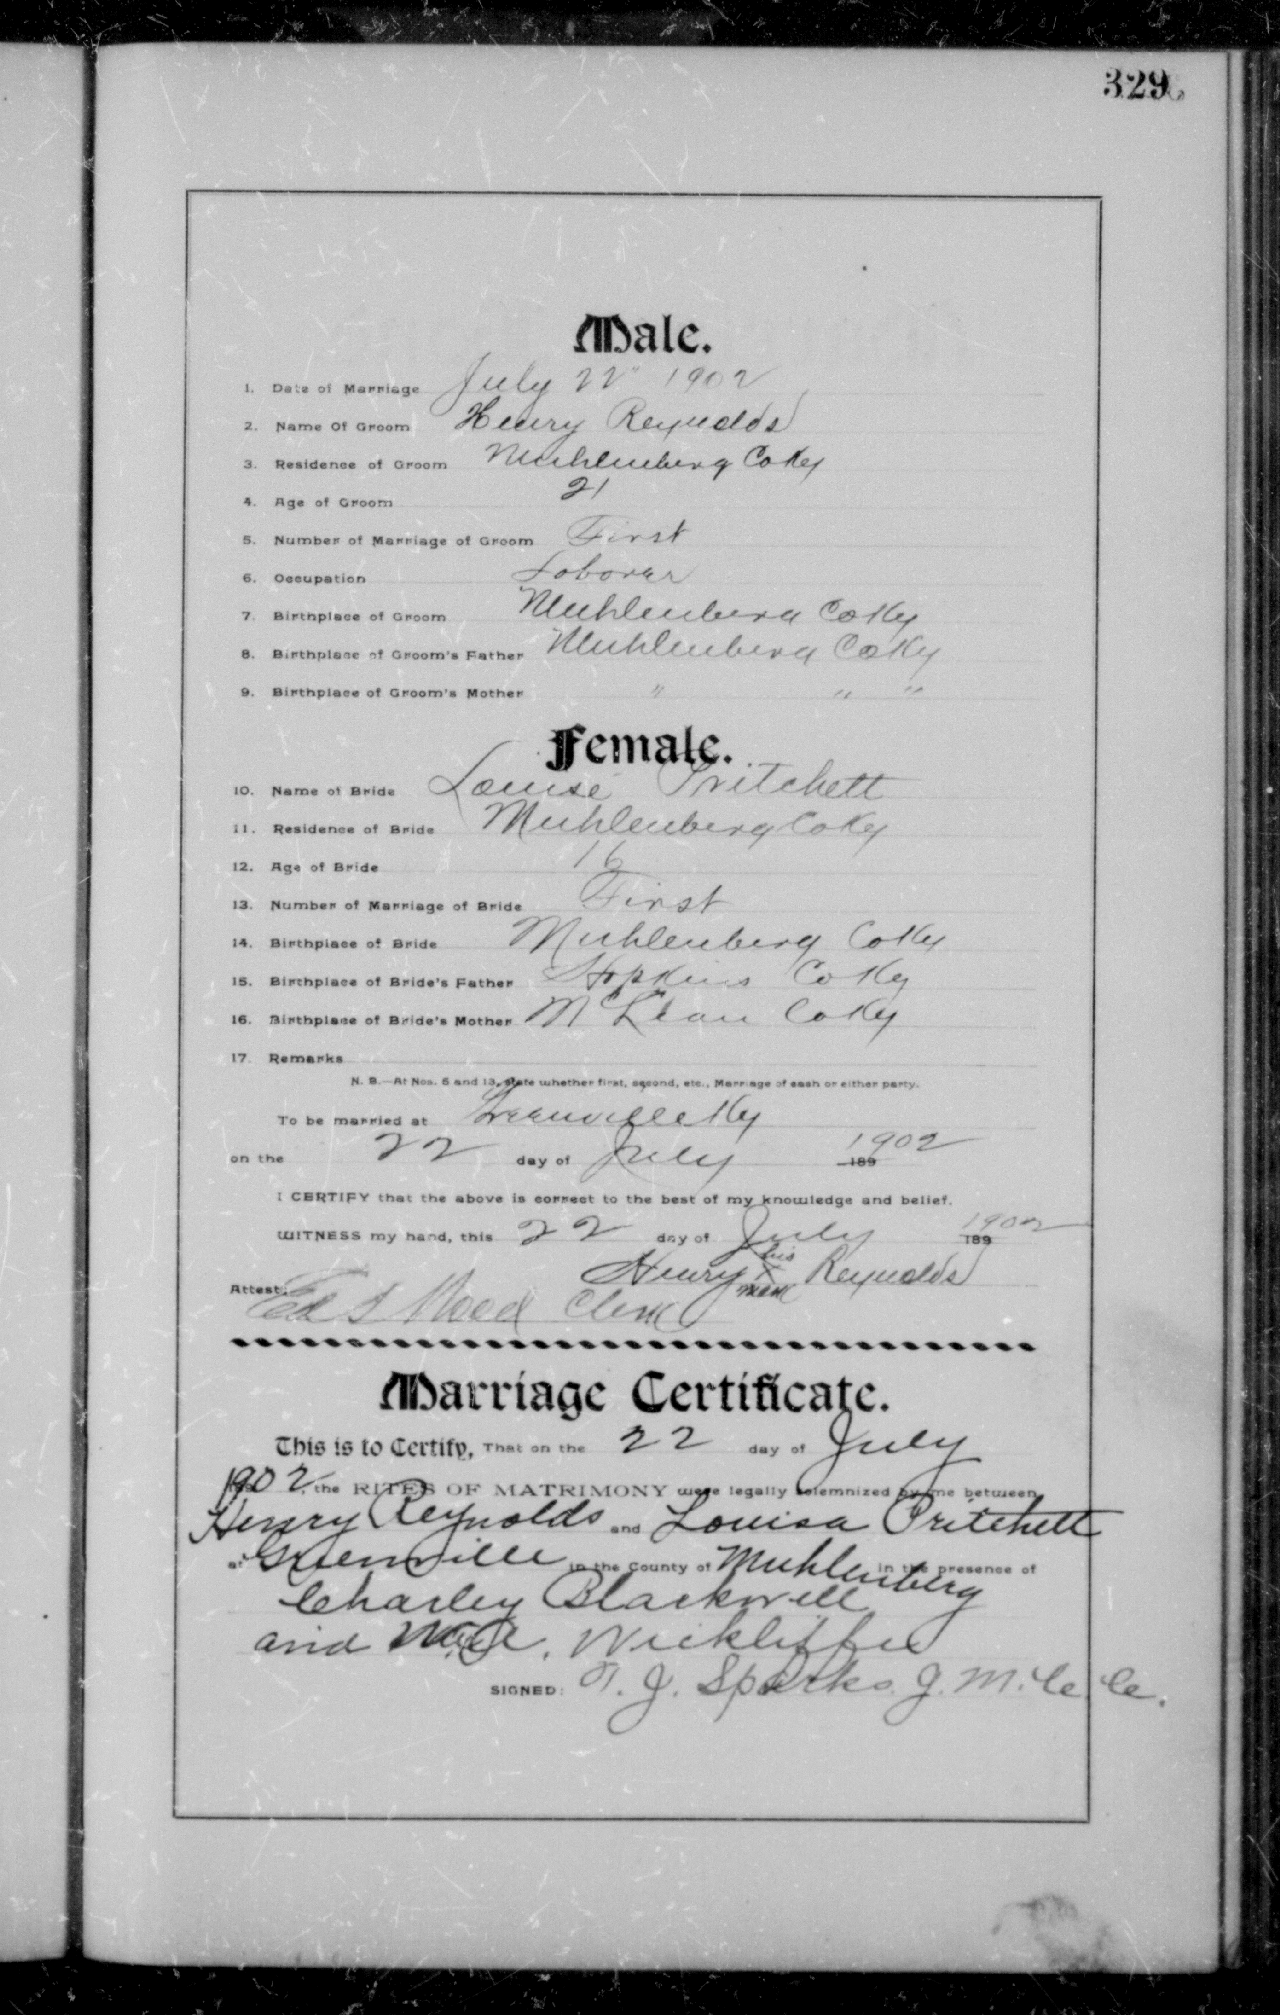 329
Male.
1. Date of Marriage July 22" 1902
2. Name Of Groom Henry Reynolds
3. Residence of Groom Muhlenberg Co Ky
4. Age of Groom 21
5. Number of Marriage of Groom First
6. Occupation Laborer
7. Birthplace of Groom Muhlenberg Co Ky
8. Birthplace of Groom's Father Muhlenberg Co Ky
9. Birthplace of Groom's Mother " " "
Female.
10. Name of Bride Louise Pritchett
11. Residence of Bride Muhlenberg Co Ky
12. Age of Bride 16
13. Number of Marriage of Bride First
14. Birthplace of Bride Muhlenberg Co Ky
15. Birthplace of Bride's Father Hopkins Co Ky
16. Birthplace of Bride's Mother McLean Co Ky
17. Remarks
N. B.—At Nos. 5 and 13, state whether first, second, etc., Marriage of each or either party.
To be married at Greenville Ky
on the 22 day of July 1902 189
I CERTIFY that the above is correct to the best of my knowledge and belief.
WITNESS my hand, this 22 day of July 1902 189
Henry his x mark Reynolds
Attest: Ed S Wood Clerk
Marriage Certificate.
This is to Certify, That on the 22 day of July
1902, the RITES OF MATRIMONY were legally solemnized by me between
Henry Reynolds and Louisa Pritchett
at Greenville in the County of Muhlenberg in the presence of
Charley Blackwell
and Wickliffe
SIGNED: T. J. Sparks J. M. C. C.